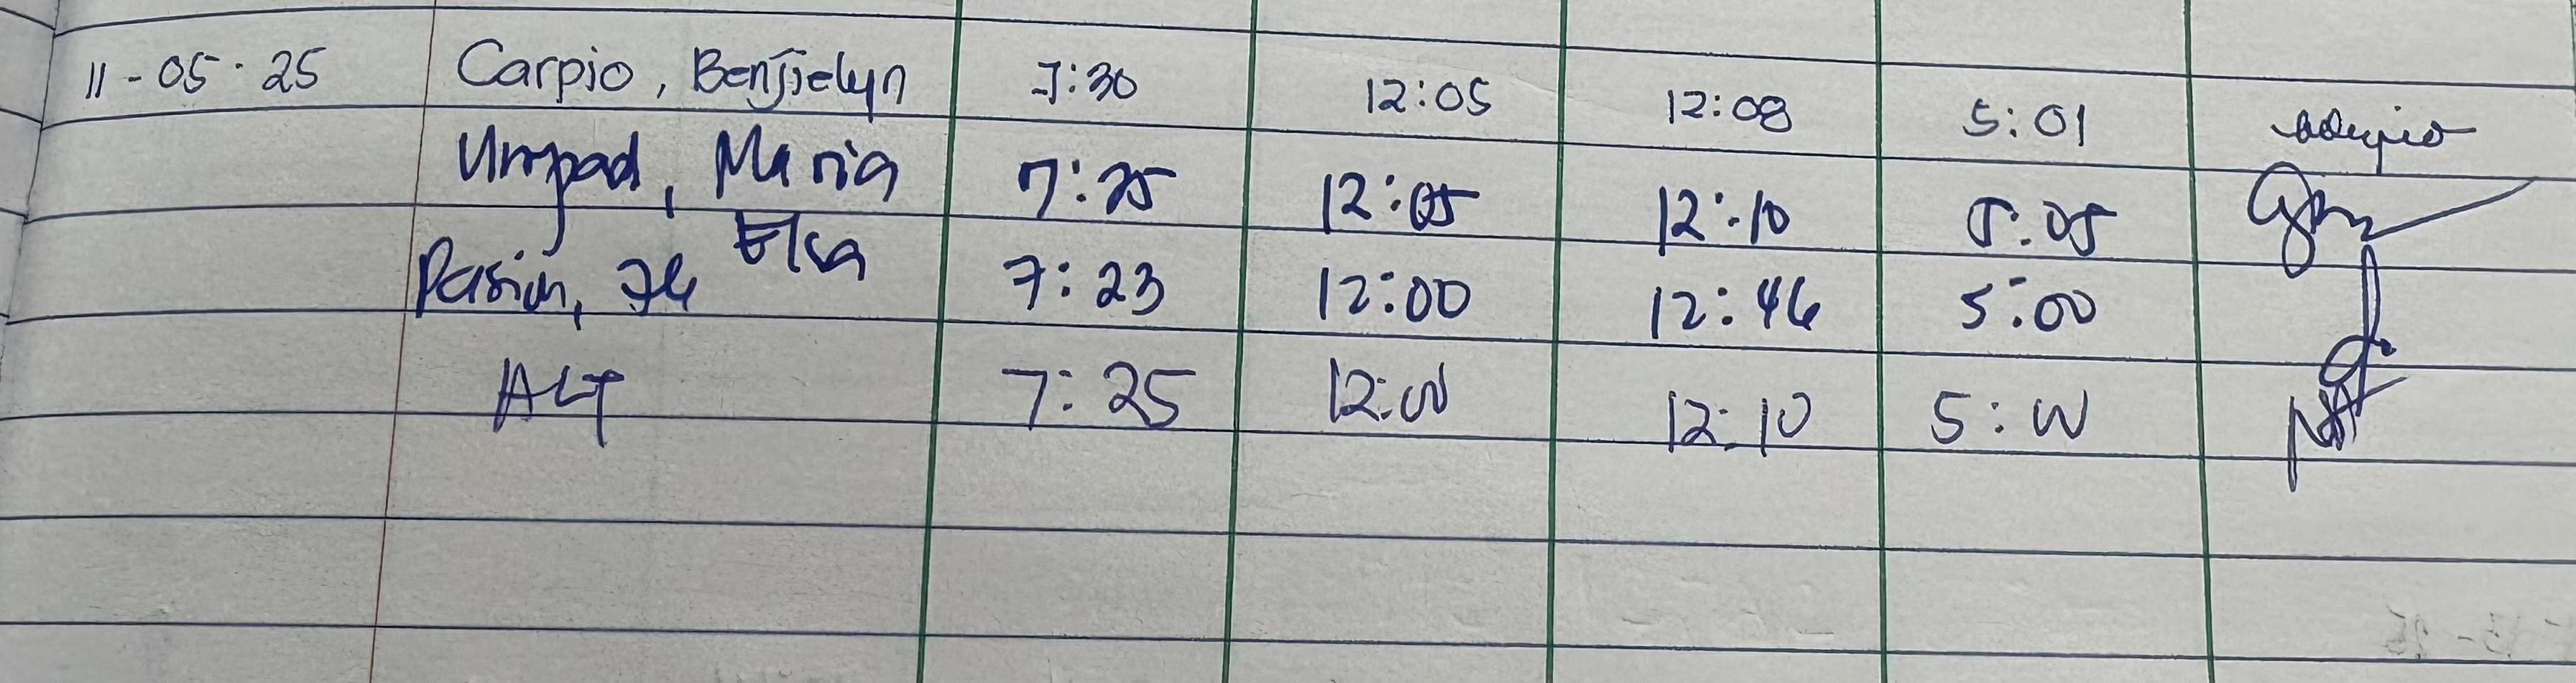 11-05-25 Carpio, Benjielyn 7:30 12:05 12:08 5:01
Umpad, Maria 7:25 12:05 12:10 5:05
Elsa
Pasion, 7:23 12:00 12:46 5:00
ALT 7:25 12:00 12:10 5:00